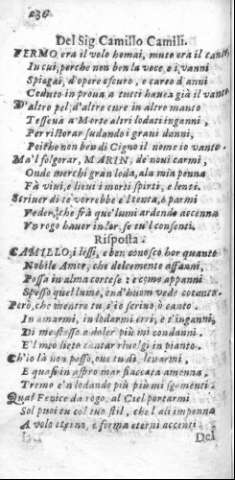 236
Del Sig. Camillo Camili.
FERMO era il volo homai, muto era il canto
In cui, perche non ben la voce, e i vanni
Spiegai, d'opre oscuro, e carco d'anni
Ceduto in proua a tutti hauea già il vanto
D'altro pel, d'altre cure in altro manto
Tesseua a Morte altri lodati inganni,
Per ristorar sudando i graui danni,
Poiche non bru di Cigno il nome io vanto.
Ma'l folgorar, MARIN, de' noui carmi,
Onde merchi gran loda, ala mia penna
Fà vini, e lieui i morti spirti, e lenti.
Scriuer di te vorrebbe e stenta, e parmi
Veder, che frà que' lumi ardendo accenna
Vo rogo hauer in lor, se tu'l consenti.
Risposta.
CAMILLO, i lessi, e ben conosco hor quanto
Nobile Amor, che dolcemente affanni,
Possa in alma cortese: e come appanni
Spesso quel lume, ond'huom vede cotanto.
Però, che mentre tu s'io scrino, ò canto
In amarmi, in lodarmi erri, e t'inganni,
Di me stesso a doler più mi condanni.
E'l mio lieto cantar riuolgi in pianto.
Ch'io là non posso, oue tu di leuarmi,
E quasi in aspro mar fiaccata antenna,
Tremo e'n lodando più più mi sgomenti.
Qual Fenice da rogo, al Ciel portarmi
Sol puoi tu col tuo stil, che l'ali impenna
A volo eterno, e forma eterni accenti.
Del